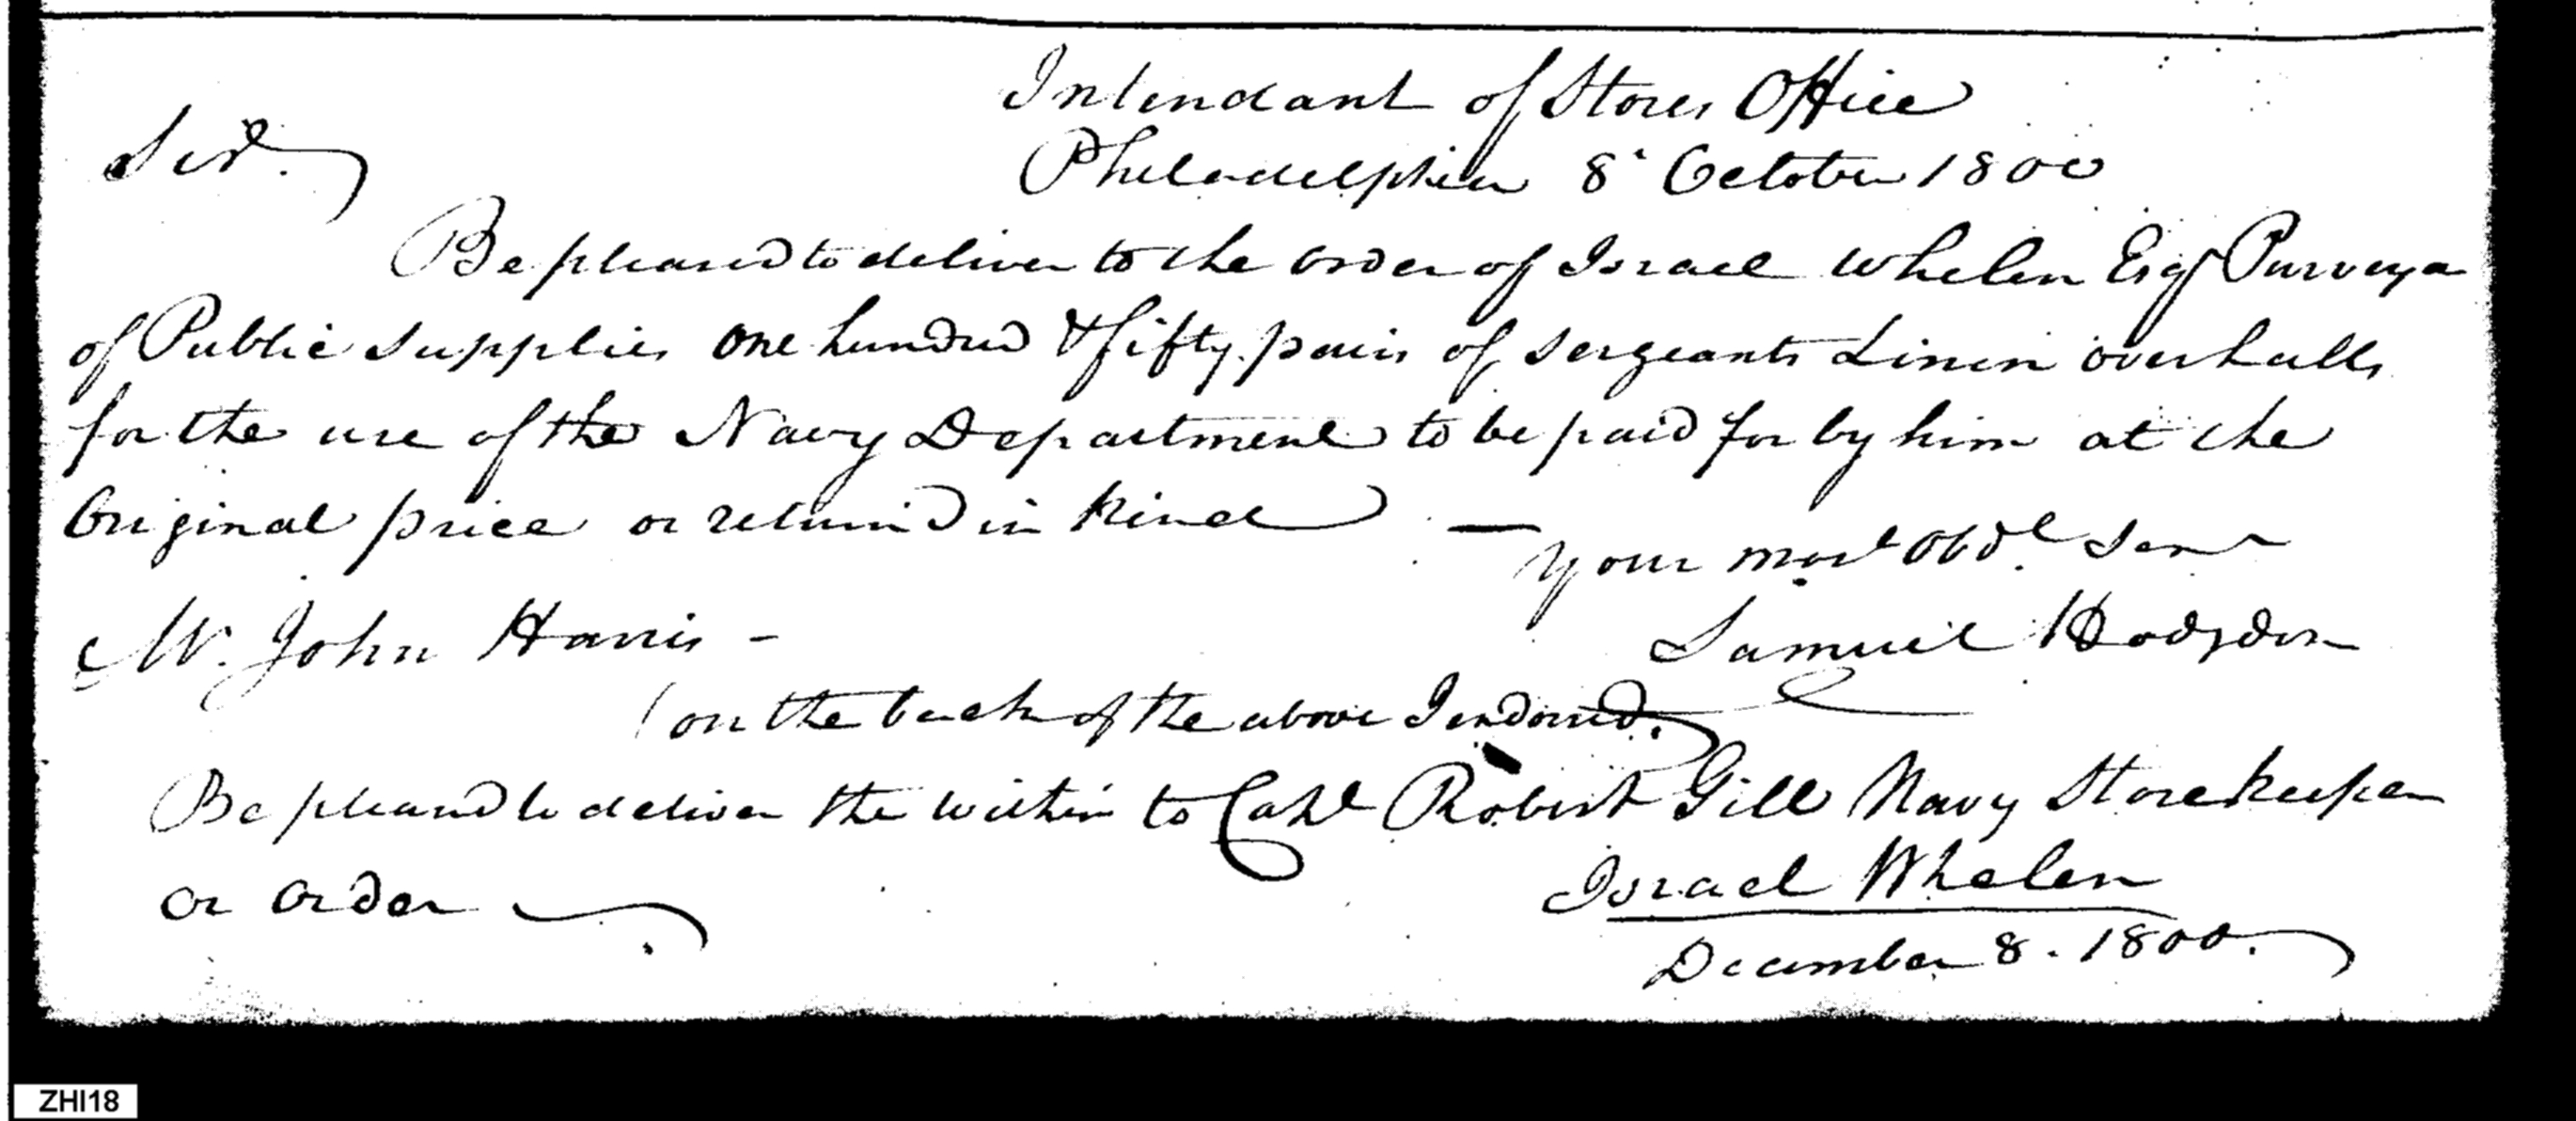 Intendant of Stores Office
Sir.
Philadelphia 8 October 1800
Be pleased to deliver to the order of Israel Whelen Esqr Purveyor
of Public Supplies One hundred & fifty pairs of Sergeants Linen overhalls
for the use of the Navy Department to be paid for by him at the
Original price or returnd in kind —
Your most Obdt. Sert
Mr. John Harris -
Samuel Hodgdon
(on the back of the above Iendorsed.)
Be pleased to deliver the within to Capt Robert Gill Navy Storekeeper
or order
Israel Whelen
December 8. 1800.
ZHI18